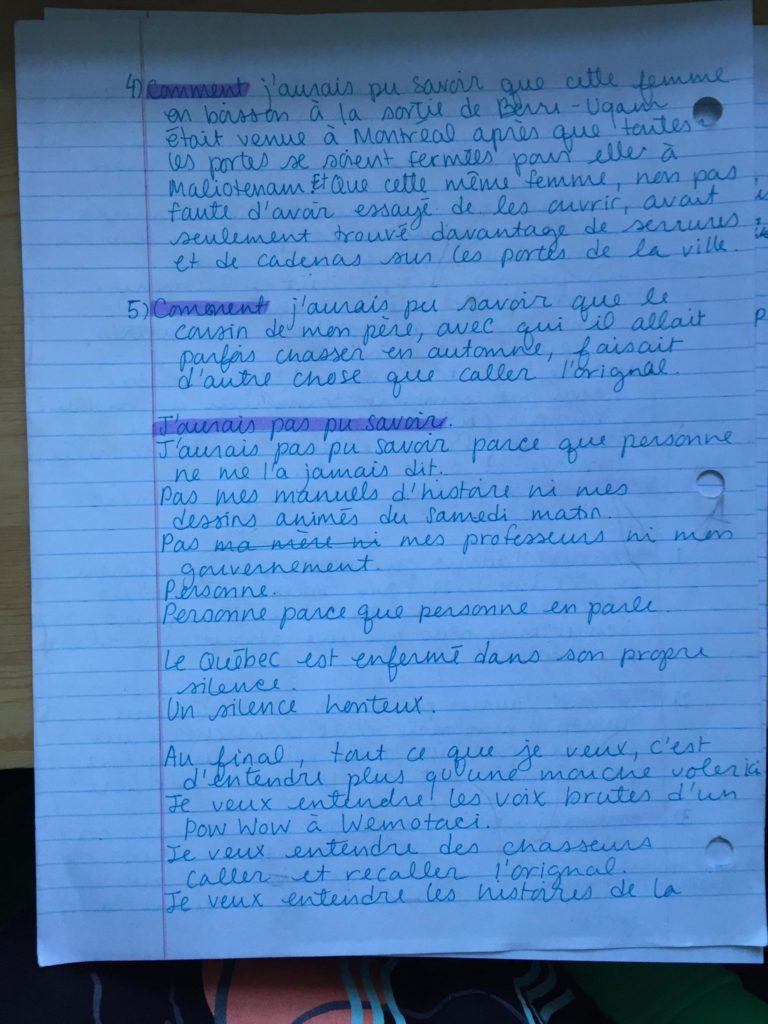 4) Comment j'aurais pu savoir que cette femme
en boisson à la sortie de Berri-Uqam
était venue à Montréal après que toutes
les portes se soient fermées pour elle à
Maliotenam Et Que cette même femme, non pas
faute d'avoir essayé de les ouvrir, avait
seulement trouvé davantage de serrures
et de cadenas sur les portes de la ville.
5) Comment j'aurais pu savoir que le
cousin de mon père, avec qui il allait
parfois chasser en automne, faisait
d'autre chose que caller l'orignal.
J'aurais pas pu savoir.
J'aurais pas pu savoir parce que personne
ne me l'a jamais dit.
Pas mes manuels d'histoire ni mes
dessins animés du samedi matin.
Pas ma mère ni mes professeurs ni mon
gouvernement.
Personne.
Personne parce que personne en parle.
Le Québec est enfermé dans son propre
silence.
Un silence honteux.
Au final, tout ce que je veux, c'est
d'entendre plus qu'une mouche voler ici
Je veux entendre les voix brutes d'un
Pow Wow à Wemotaci.
Je veux entendre des chasseurs
caller et recaller l'orignal.
Je veux entendre les histoires de la